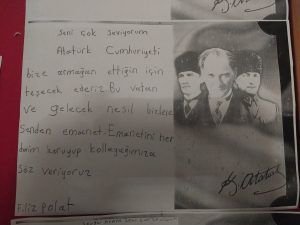 Seni çok seviyorum
Atatürk Cumhuriyeti
bize armağan ettiğin için
teşecek ederiz. Bu vatan
ve gelecek nesil bizlere
Senden emanet. Emanetini her
daim koruyup kollayağımıza
söz veriyoruz
Filiz polat
K. Atatürk